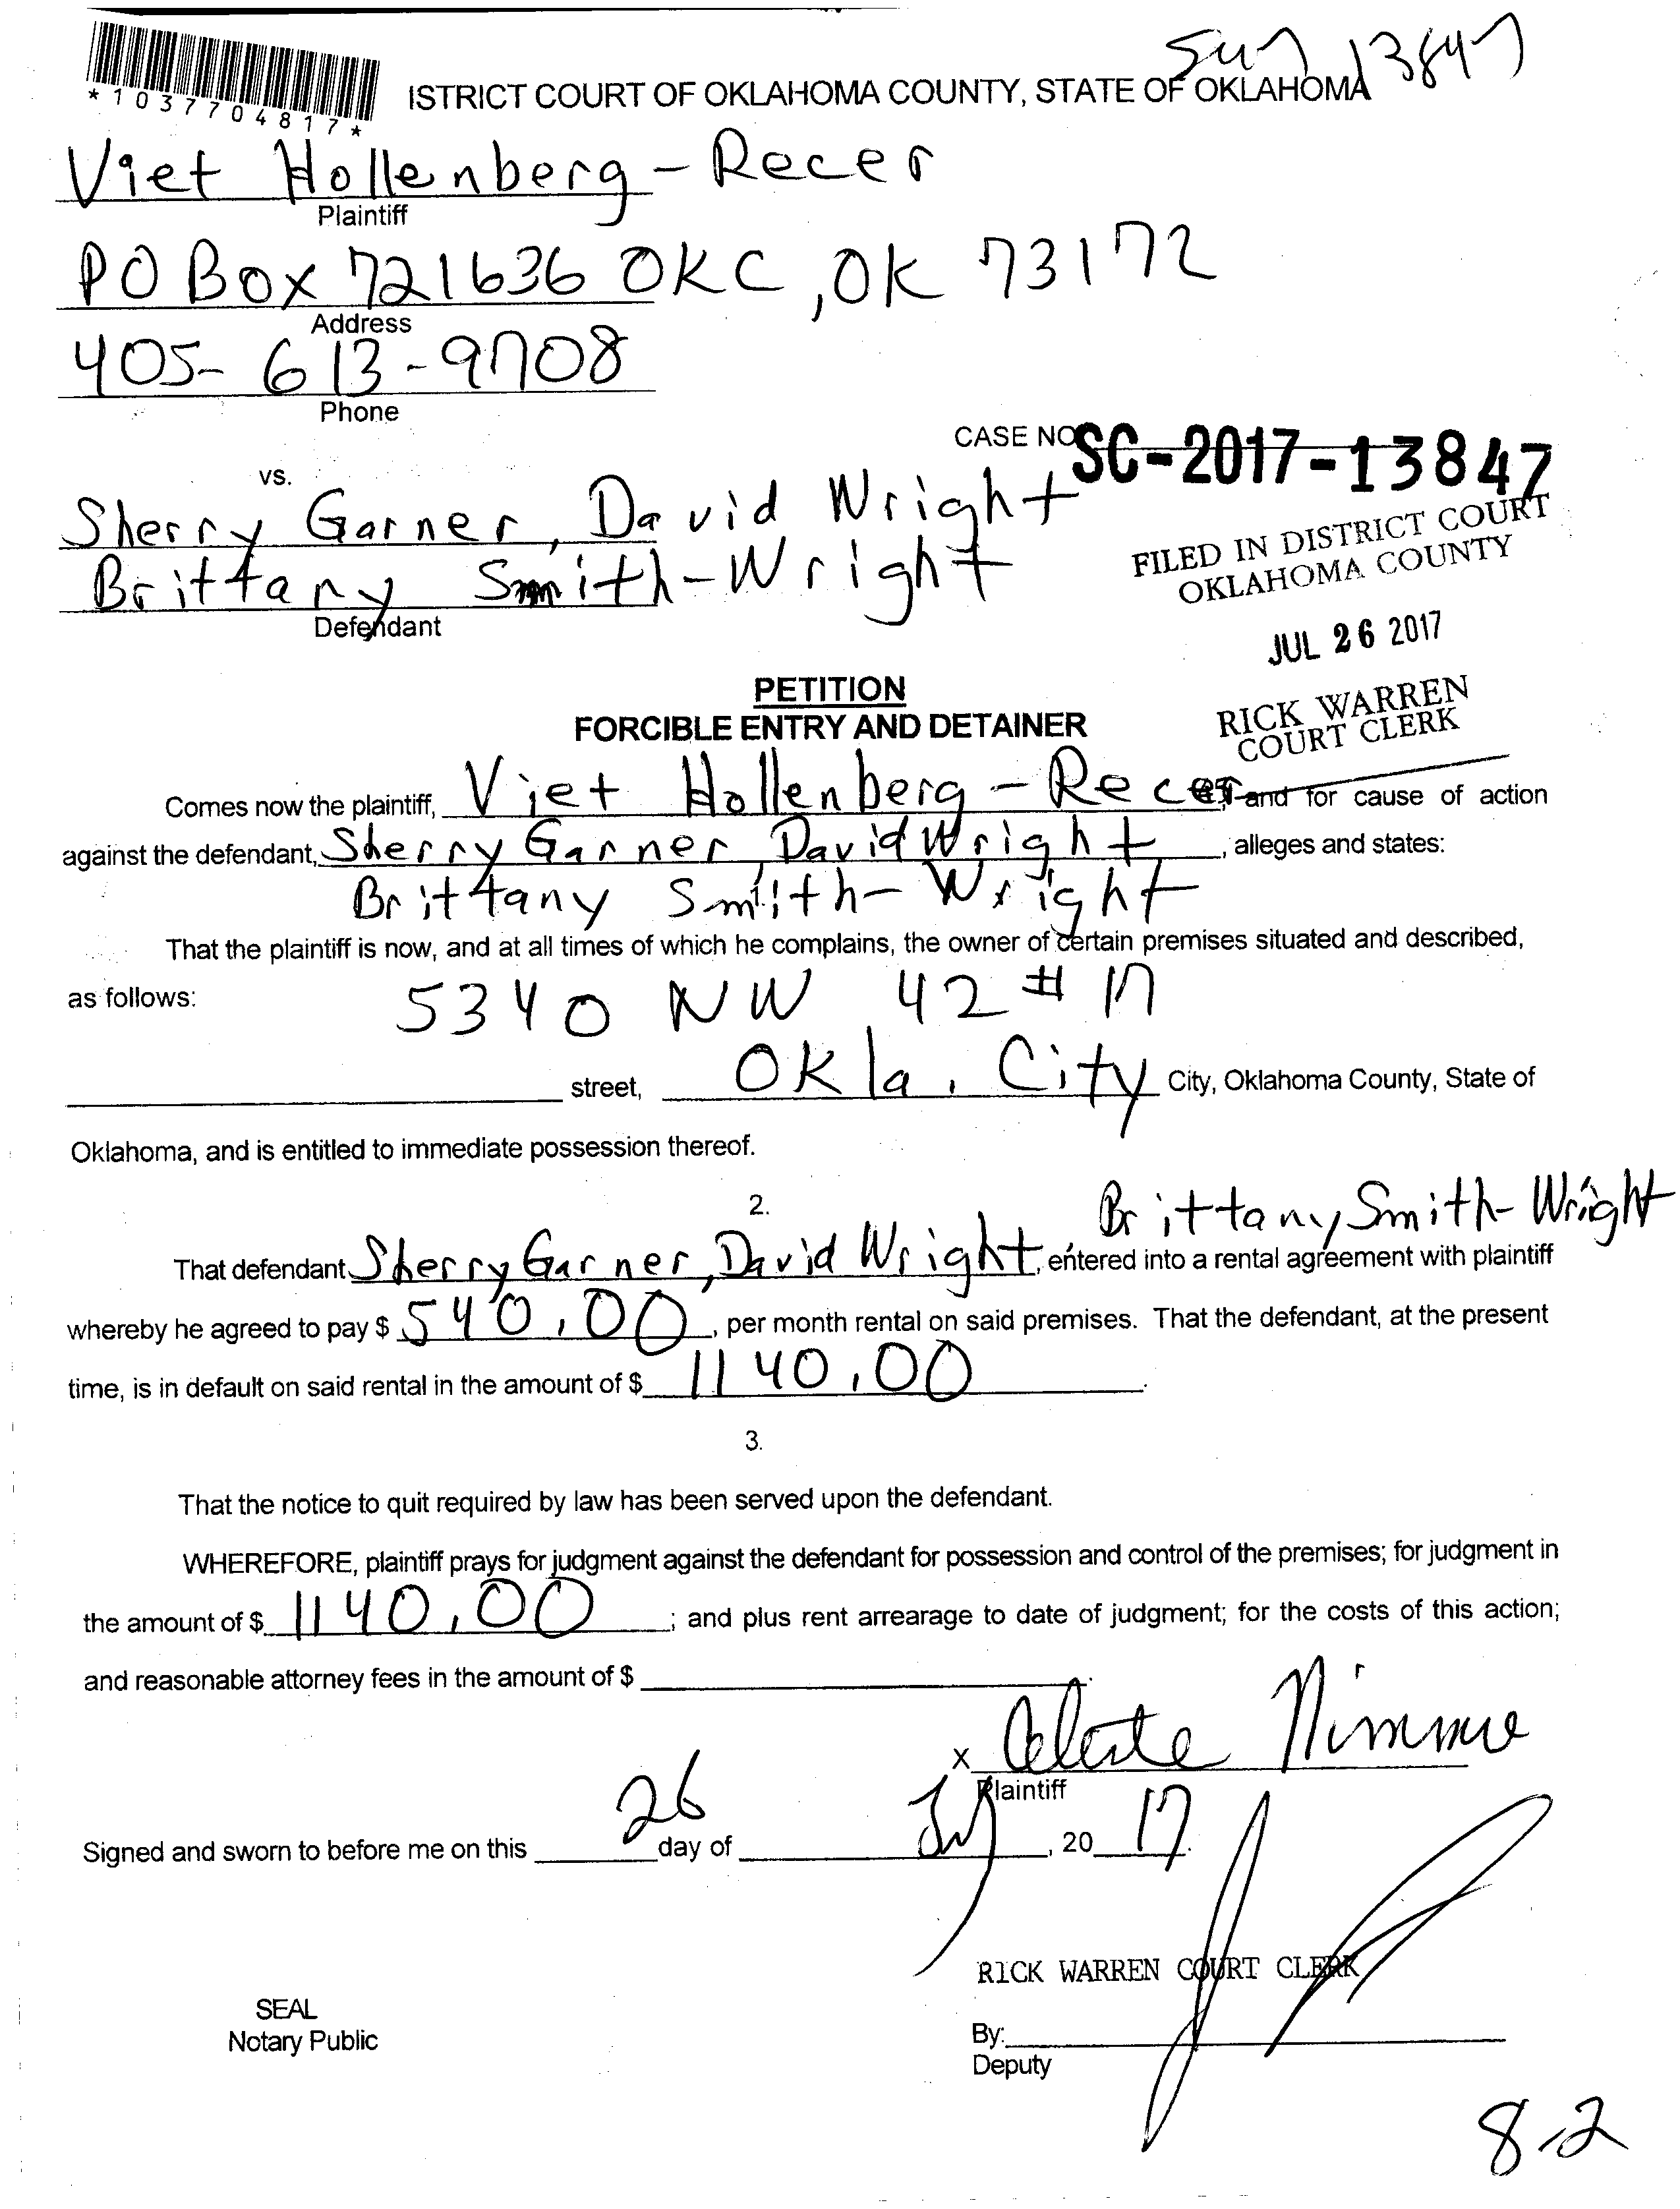 13847
*1037704817*
ISTRICT COURT OF OKLAHOMA COUNTY, STATE OF OKLAHOMA
Viet Hollenberg-Recer
Plaintiff
PO Box 721636 OKC, OK 73172
Address
405-613-9708
Phone
CASE NO SC-2017-13847
vs.
Sherry Garner, David Wright
Brittany Smith-Wright
Defendant
FILED IN DISTRICT COURT
OKLAHOMA COUNTY
JUL 26 2017
RICK WARREN
COURT CLERK
PETITION
FORCIBLE ENTRY AND DETAINER
Comes now the plaintiff, Viet Hollenberg-Recer, and for cause of action
against the defendant, Sherry Garner, David Wright, alleges and states:
Brittany Smith-Wright
That the plaintiff is now, and at all times of which he complains, the owner of certain premises situated and described,
as follows: 5340 NW 42 # 17
street, Okla. City City, Oklahoma County, State of
Oklahoma, and is entitled to immediate possession thereof.
2.
Brittany Smith-Wright
That defendant Sherry Garner, David Wright, entered into a rental agreement with plaintiff
whereby he agreed to pay $ 540.00, per month rental on said premises. That the defendant, at the present
time, is in default on said rental in the amount of $ 1140.00.
3.
That the notice to quit required by law has been served upon the defendant.
WHEREFORE, plaintiff prays for judgment against the defendant for possession and control of the premises; for judgment in
the amount of $ 1140.00; and plus rent arrearage to date of judgment; for the costs of this action;
and reasonable attorney fees in the amount of $
x Celeste Nimmo
Plaintiff
Signed and sworn to before me on this 26 day of July, 2017.
RICK WARREN COURT CLERK
SEAL
Notary Public
By:
Deputy
8-2